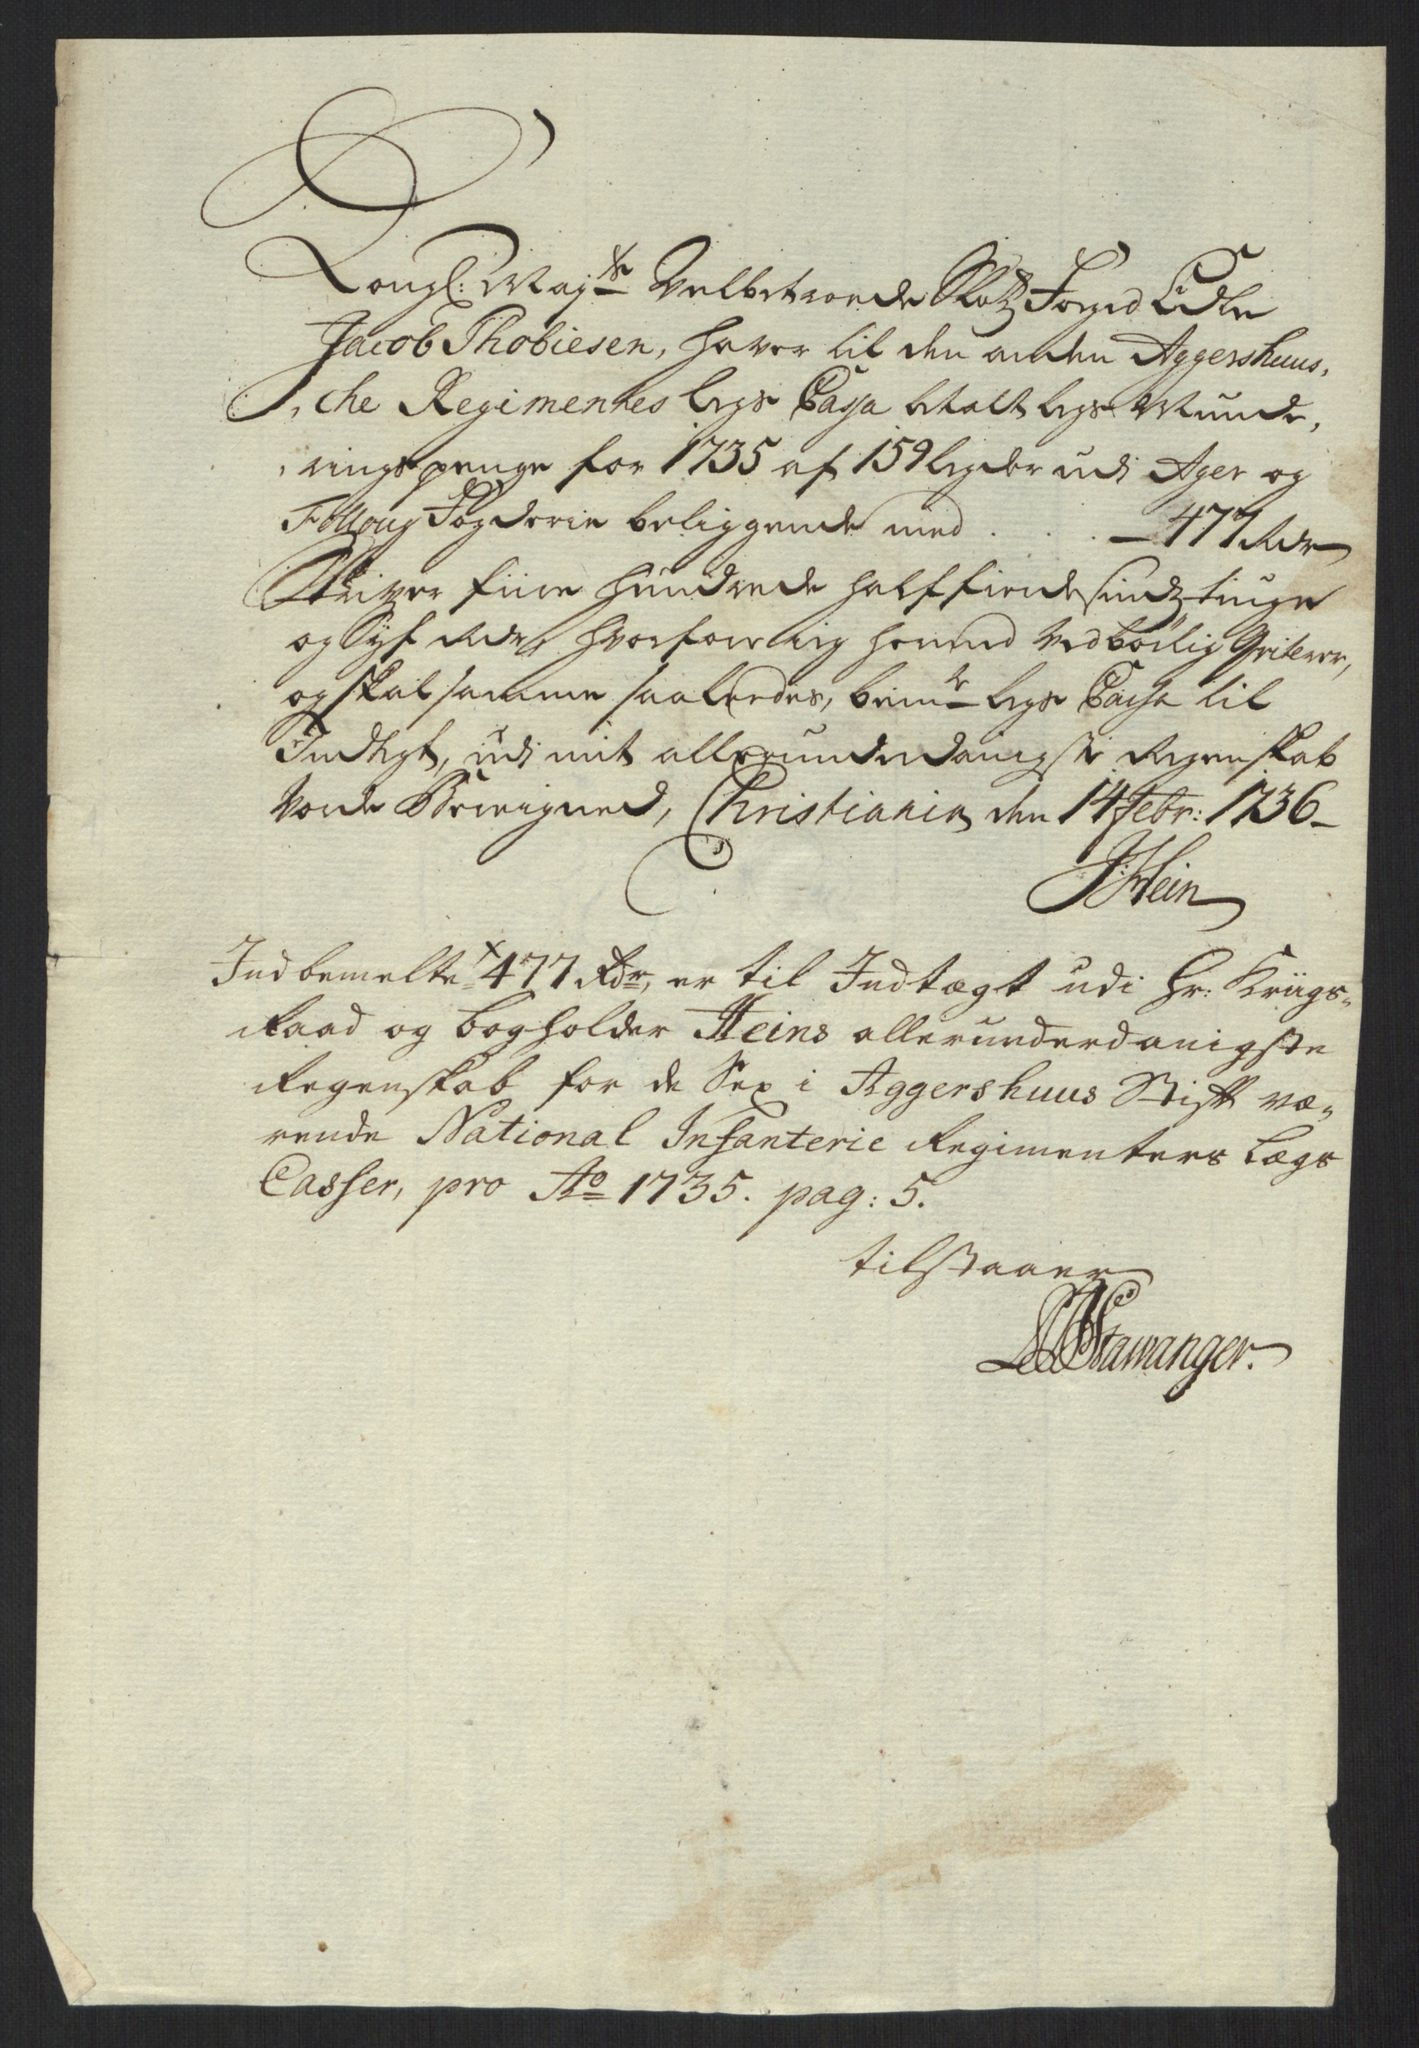 Kongl: Maytz Velbetroede Slotz Foged Edle
Jacob Thobiesen, haver til den anden Aggershuus,
,che Regimentes legs Cassa betalt legs Munde,
,ringspenge for 1735 af 159 legder udi Ager og
Folloug Fogderie beliggende med . . . — 477 Rdr
Skriver fiire hundrede halffierdesindztiuge
og Syf Rdr, hvorfore ieg hermed Vedbørlig Qviterer,
og skal samme saaledes, bemte legs Cassa til
Indtegt, udi mit allerunderdanigste Regenskab
Vorde Beregned, Christiania den 14 Febr: 1736 –
JHein
Indbemelte x 477 Rdr, er til Indtægt udi Hr: Kriigs-
Raad og bogholder Heins allerunderdanigste
Regenskab for de Sex i Aggershuus Stift væ-
rende National Infanterie Regimenters Lægs
Casser, pro Ao 1735. pag: 5.
tilstaaer
Stawanger.